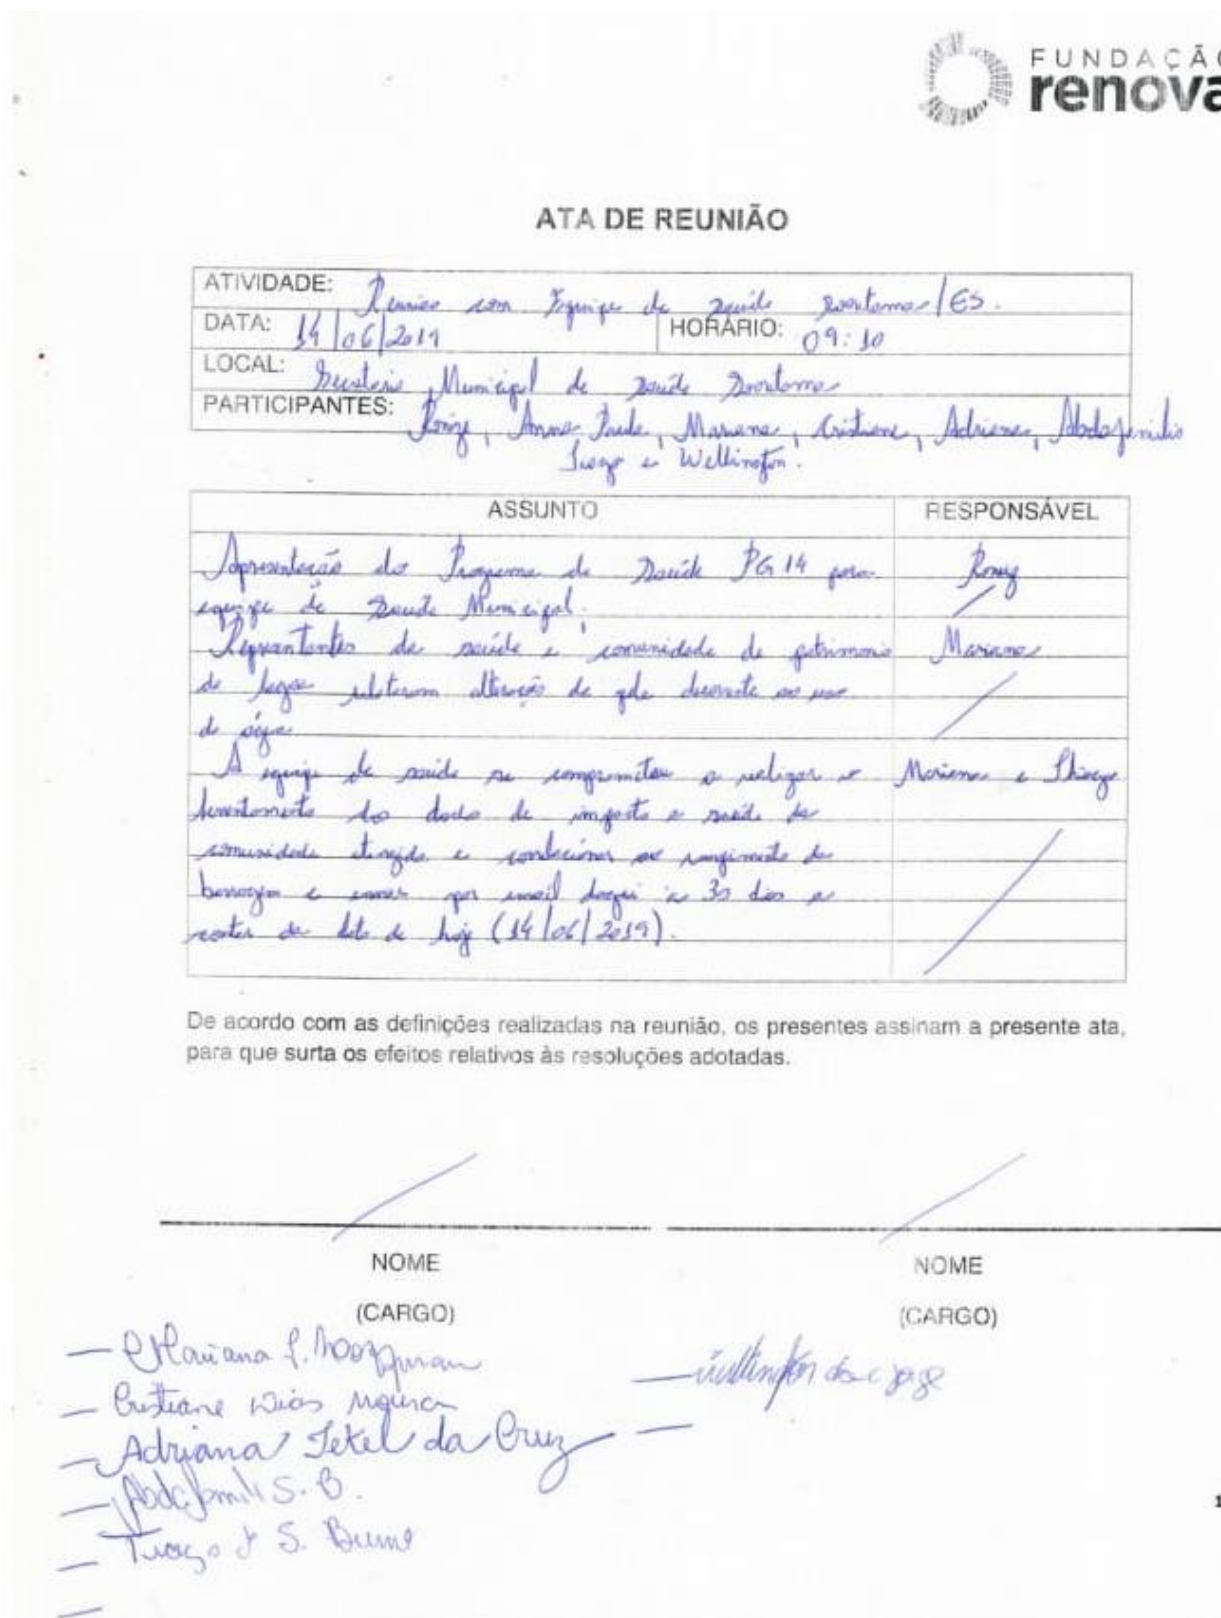 FUNDAÇÃO
renova
ATA DE REUNIÃO
ATIVIDADE: Reunião com Equipe de Saúde Sooretama/ES.
DATA: 14/06/2019 HORÁRIO: 09:10
LOCAL: Municipal de Saúde Sooretama
PARTICIPANTES: Anna Paula, Mariana, Cristiane, Adriana,
e Wellington.
ASSUNTO RESPONSÁVEL
Apresentação do Programa de Saúde PG 14 para
equipe de Saúde Municipal.
Representantes da saúde e comunidade de patrimonio Mariana
da lagoa relataram alteração de pele decorrente ao uso
da água
A equipe de saúde se comprometeu a realizar o Mariana e Thiago
levantamento dos dados de impacto a saúde da
comunidade atingida e ao rompimento da
barragem e enviar por email daqui a 30 dias a
contar da data de hoje (14/06/2019).
De acordo com as definições realizadas na reunião, os presentes assinam a presente ata,
para que surta os efeitos relativos às resoluções adotadas.
NOME NOME
(CARGO) (CARGO)
— Mariana
— Cristiane Dias — Wellington
— Adriana da Cruz —
— S. B.
— Tiago S.
—
1